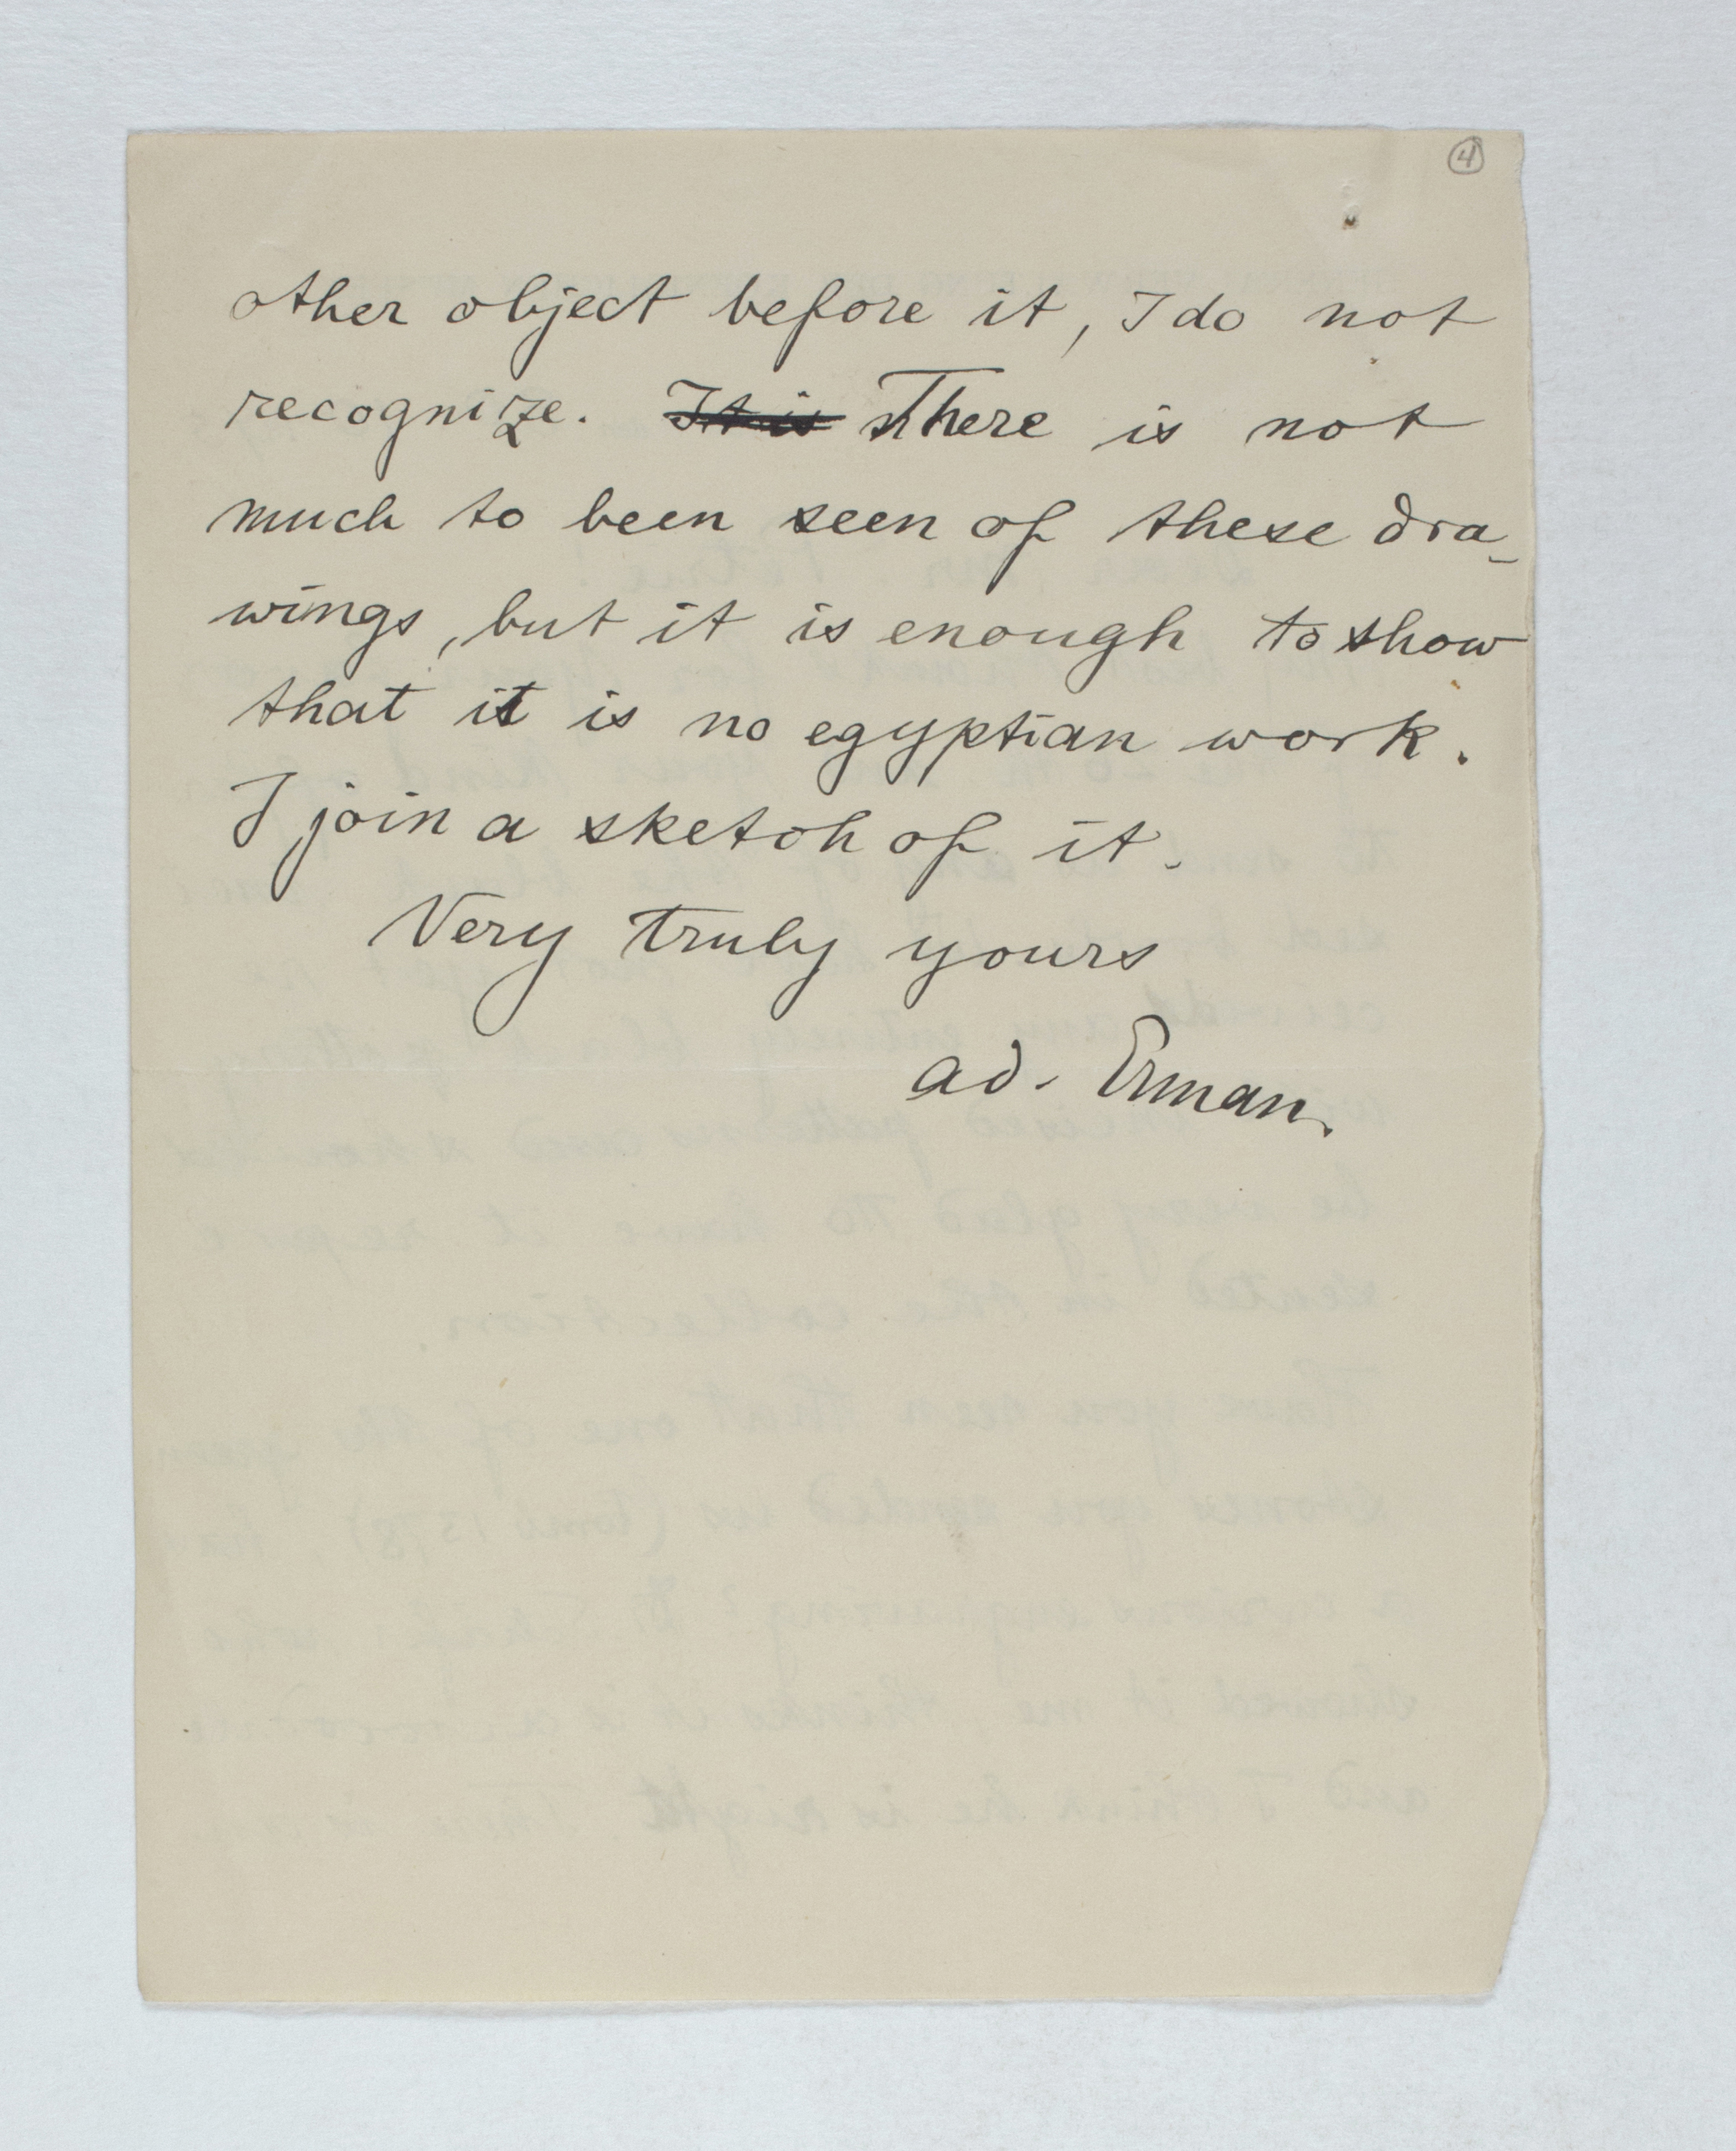 4
other object before it, I do not
recognize. It is There is not
much to been seen of these dra-
wings, but it is enough to show
that it is no egyptian work.
I join a sketch of it.
Very truly yours
ad. Erman.